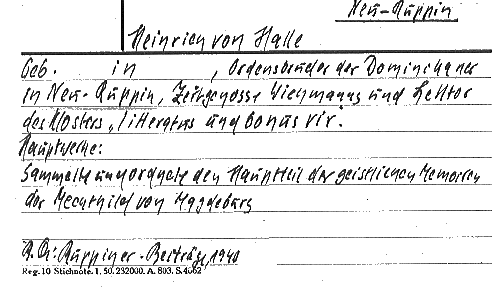 Neu-Ruppin
Heinrich von Halle
Geb. in , Ordensbruder der Dominikaner
in Neu-Ruppin, Zeitgenosse Wichmanns und Lektor
des Klosters, "litteratus und bonus vir".
Hauptwerke:
Sammelte und ordnete den Hauptteil der geistlichen Memoiren
der Mechthild von Magdeburg
A.A.: Ruppiner-Beiträge, 1940
Reg. 10 Stichnote. 1. 50. 232000. A. 803. S. 4662